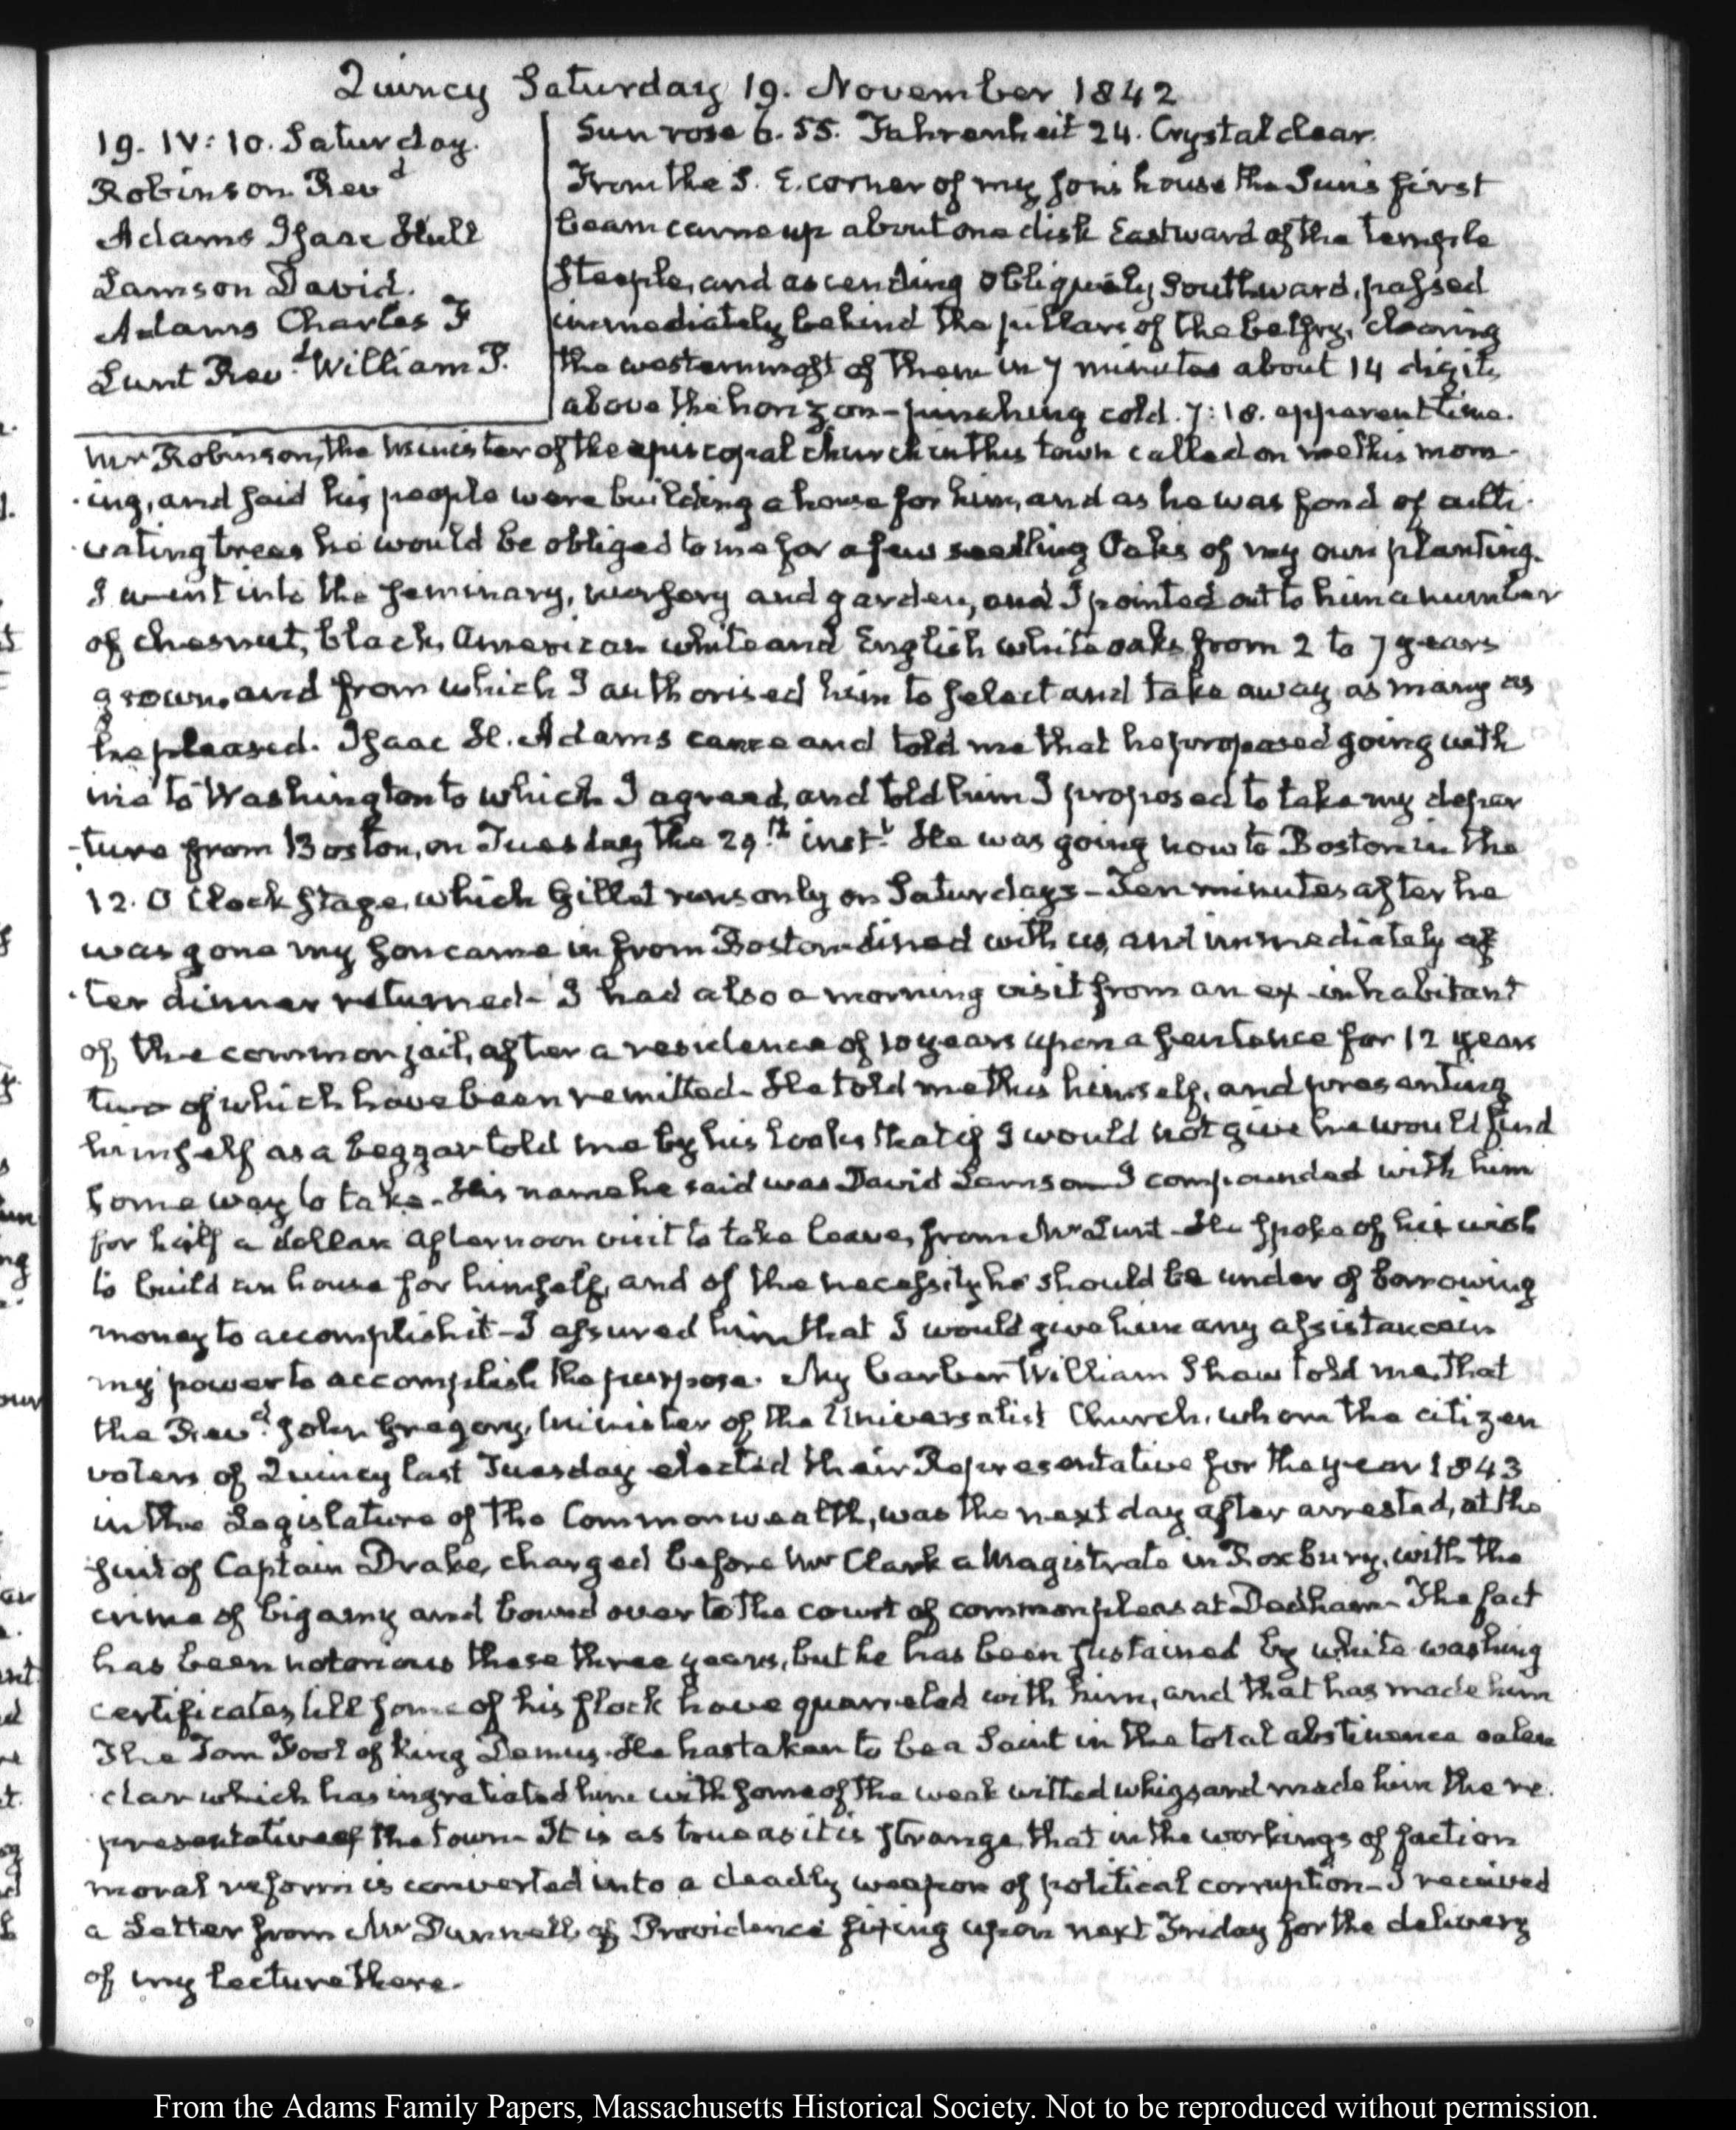 Quincy Saturday 19. November 1842
19. IV: 10. Saturday.
Robinson Revd
Adams Isaac Hull
Lamson David.
Adams Charles F
Lunt Revd. William P.
Sun rose 6.55. Fahrenheit 24. Crystal clear.
From the S. E. corner of my son's house the Sun's first
beam came up about one disk Eastward of the temple
Steeple, and ascending obliquely Southward, passed
immediately behind the pillars of the belfry, clearing
the westernmost of them in 7 minutes about 14 digits
above the horizon - pinching cold. 7:18. apparent time.
Mr Robinson, the Minister of the episcopal church in this town called on me this morn-
-ing, and said his people were building a house for him, and as he was fond of culti-
-vating trees he would be obliged to me for a few seedling Oaks of my own planting.
I went into the seminary, nursery and garden, and I pointed out to him a number
of chesnut, black, American white and English white oaks from 2 to 7 years
grown, and from which I authorised him to select and take away as many as
he pleased. Isaac H. Adams came and told me that he proposed going with
me to Washington to which I agreed, and told him I proposed to take my depar
-ture from Boston, on Tuesday the 29.th inst.t He was going now to Boston in the
12. O Clock Stage, which Gillet runs only on Saturdays - Ten minutes after he
was gone my son came in from Boston dined with us, and immediately af
-ter dinner returned - I had also a morning visit from an ex-inhabitant
of the common jail, after a residence of 10 years upon a sentence for 12 years
two of which have been remitted - He told me this himself, and presenting
himself as a beggar told me by his looks that if I would not give he would find
some way to take - His name he said was David Lamson - I compounded with him
for half a dollar. Afternoon visit to take leave, from Mr Lunt - He spoke of his wish
to build an house for himself, and of the necessity he should be under of borrowing
money to accomplish it - I assured him that I would give him any assistance in
my power to accomplish the purpose. My barber William Shaw told me that
the Rev.d John Gregory, Minister of the Universalist Church, whom the citizen
voters of Quincy last Tuesday elected their Representative for the year 1843
in the Legislature of the Commonwealth, was the next day after arrested, at the
suit of Captain Drake, charged before Mr Clark a Magistrate in Roxbury, with the
crime of bigamy and bound over to the court of common pleas at Dedham - The fact
has been notorious these three years, but he has been sustained by white-washing
certificates, till some of his flock have quarreled with him, and that has made him
The Tom Fool of King Demus. He has taken to be a Saint in the total abstinence calen
-dar which has ingratiated him with some of the weak witted whigs and made him the re-
-presentative of the town - It is as true as it is strange, that in the workings of faction
moral reform is converted into a deadly weapon of political corruption - I received
a Letter from Mr Dunnell of Providence fixing upon next Friday for the delivery
of my lecture there.
From the Adams Family Papers, Massachusetts Historical Society. Not to be reproduced without permission.